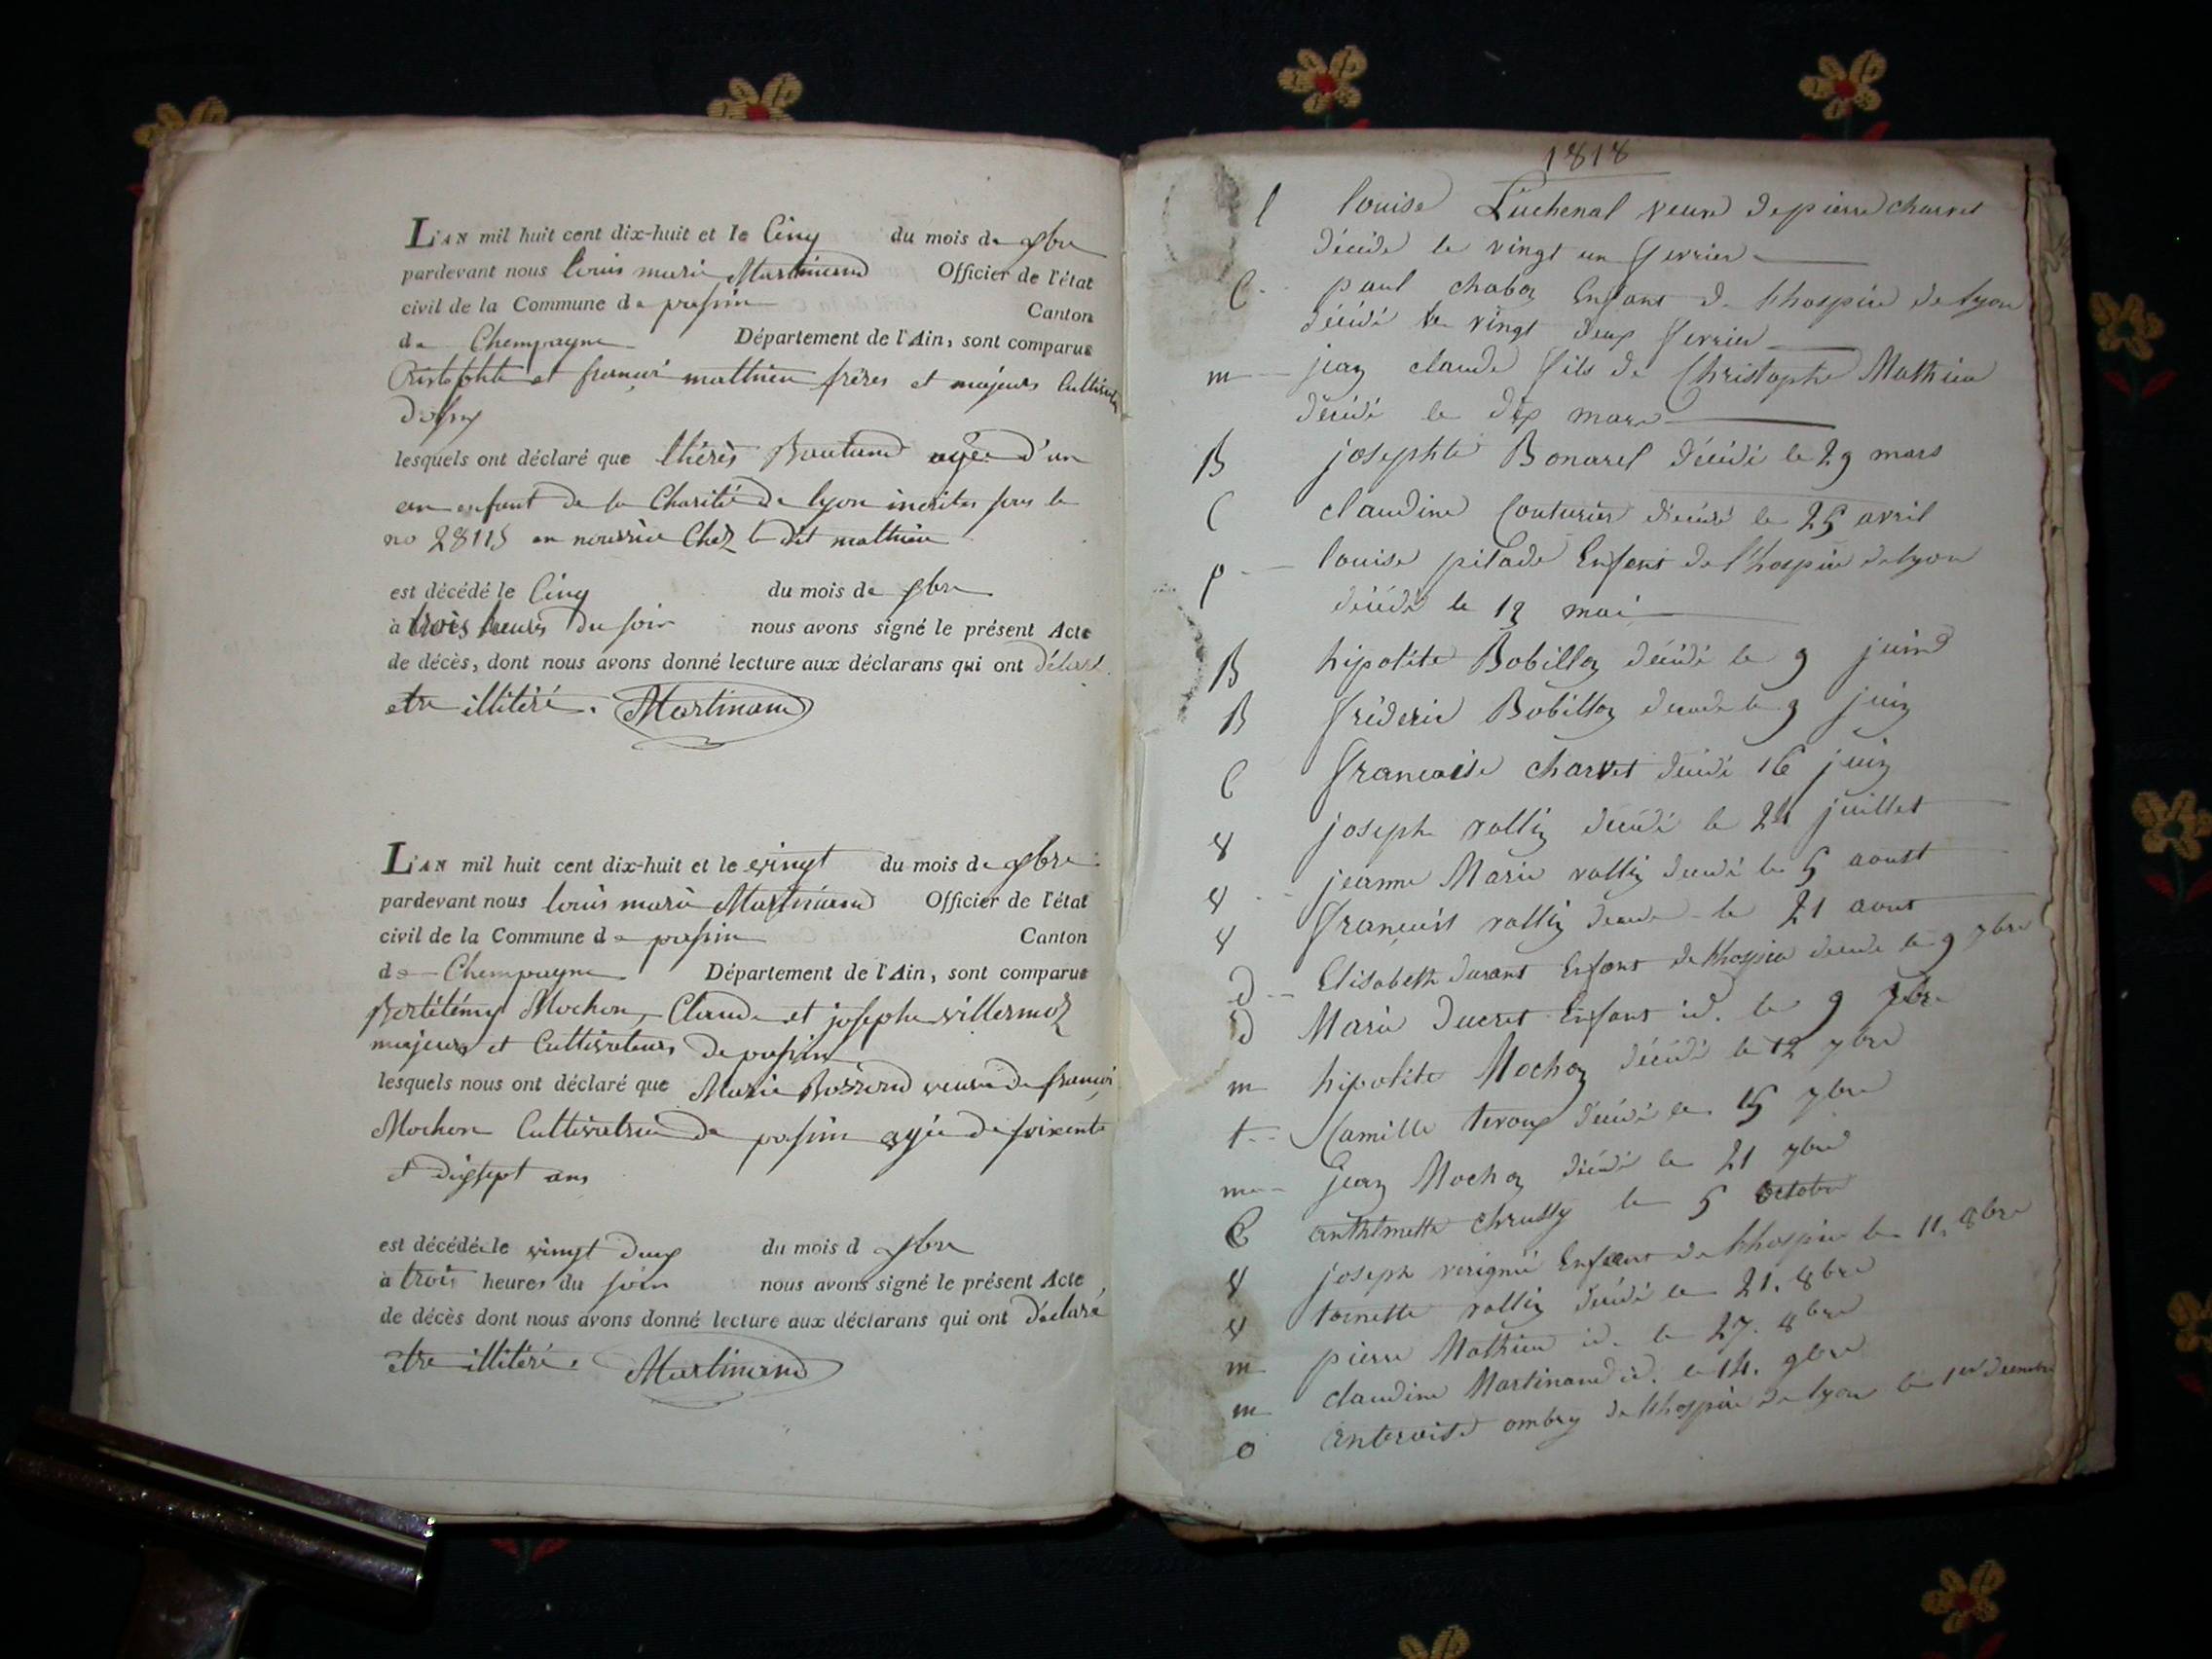 L'AN mil huit cent dix-huit et le Cinq du mois de 9bre
pardevant nous louis marie Martinand Officier de l'état
civil de la Commune de passin
Canton
de Chempagne Département de l'Ain, sont comparus
Cristophte et françoi mathieu fréres et majeurs Cultivateur
lesquels ont déclaré que thérès agée d'un
an enfant de la Charité de lyon incrites sous le
no 28115 en nourrice Chez le dit mathieu
est décédé le Cinq du mois de 9bre
à trois heures du soir nous avons signé le présent Acte
de décès, dont nous avons donné lecture aux déclarans qui ont déclaré
etre illitéré. Martinand
L'AN mil huit cent dix-huit et le vingt du mois de 9bre
pardevant nous louis marie Martinand Officier de l'état
civil de la Commune de passin Canton
de Chempagne Département de l'Ain, sont comparus
Bertélémy Mochon, Claude et josephe villermoz
majeurs et Cultivateurs de passin
lesquels nous ont déclaré que Marie veuve de françoi
Mochon Cultivatrice de passin agée de soixente
et dixsept ans
est décédé le vingt deux du mois d 9bre
à trois heures du soir nous avons signé le présent Acte
de décès dont nous avons donné lecture aux déclarans qui ont déclaré
etre illitéré. Martinand
1818
l louise Luchenal veuve de pierre charvet
décédé le vingt un fevrier
C paul chabon Enfant de lhospice de lyon
décédé le vingt deux fevrier
m jean claude fils de Christophe Mathieu
décédé le dix mars
B josephte Bonarel décédé le 29 mars
C claudine Couturier décédé le 25 avril
p louise pilade Enfant de l'hospice de lyon
décédé le 12 mai
B hipolite Bobillon décédé le 9 juin
B fréderic Bobillon décédé le 9 juin
C francoise charvet décédé 16 juin
8 joseph rollin décédé le 24 juillet
8 jeanne Marie rollin décédé le 5 aoust
8 françois rollin décédé le 21 aout
D Elisabeth durant Enfant de lhospice décédé le 9 7bre
D Marie Ducret Enfant id. le 9 7bre
m hipolite Mochon décédé le 12 7bre
t Camille teroux décédé le 15 7bre
m jean Mochon décédé le 21 7bre
C anthelmette le 5 octobre
8 joseph Enfant de lhospice le 11. 8bre
8 toinette rollin décédé le 21. 8bre
m pierre Mathieu id. le 27. 8bre
m claudine Martinand id. le 14. 9bre
o ombry de lhospice de lyon le 1er decembre